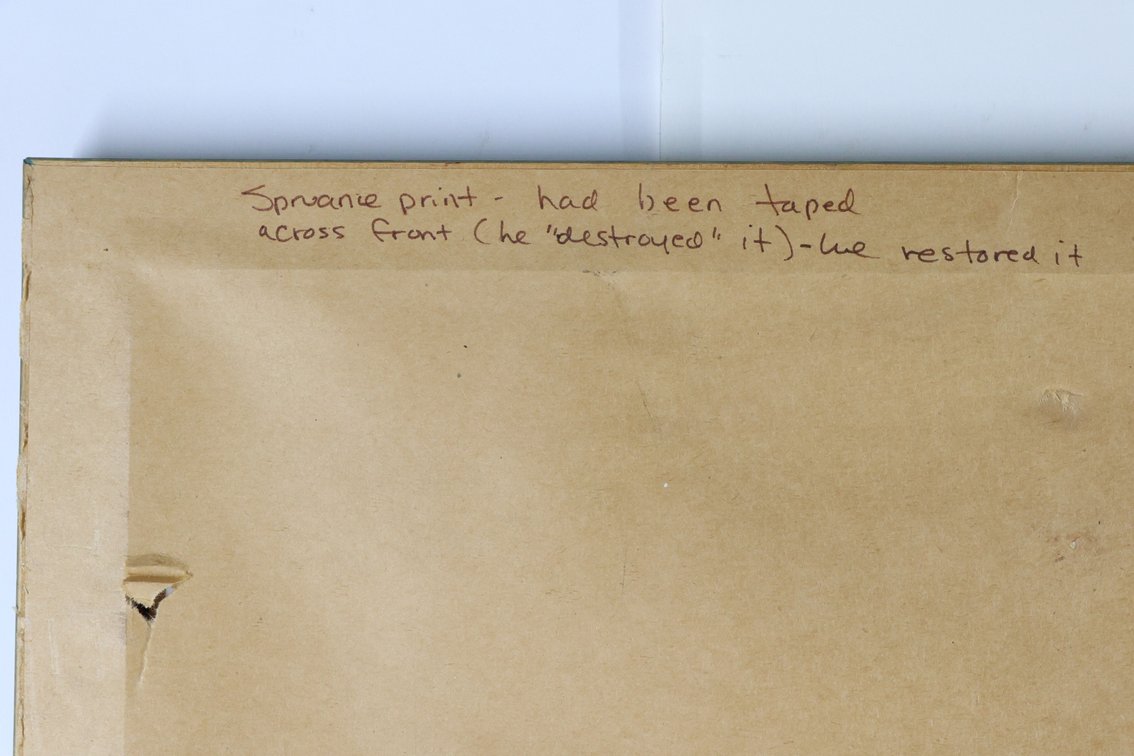 Spruance print - had been taped
across front (he "destroyed" it) - we restored it